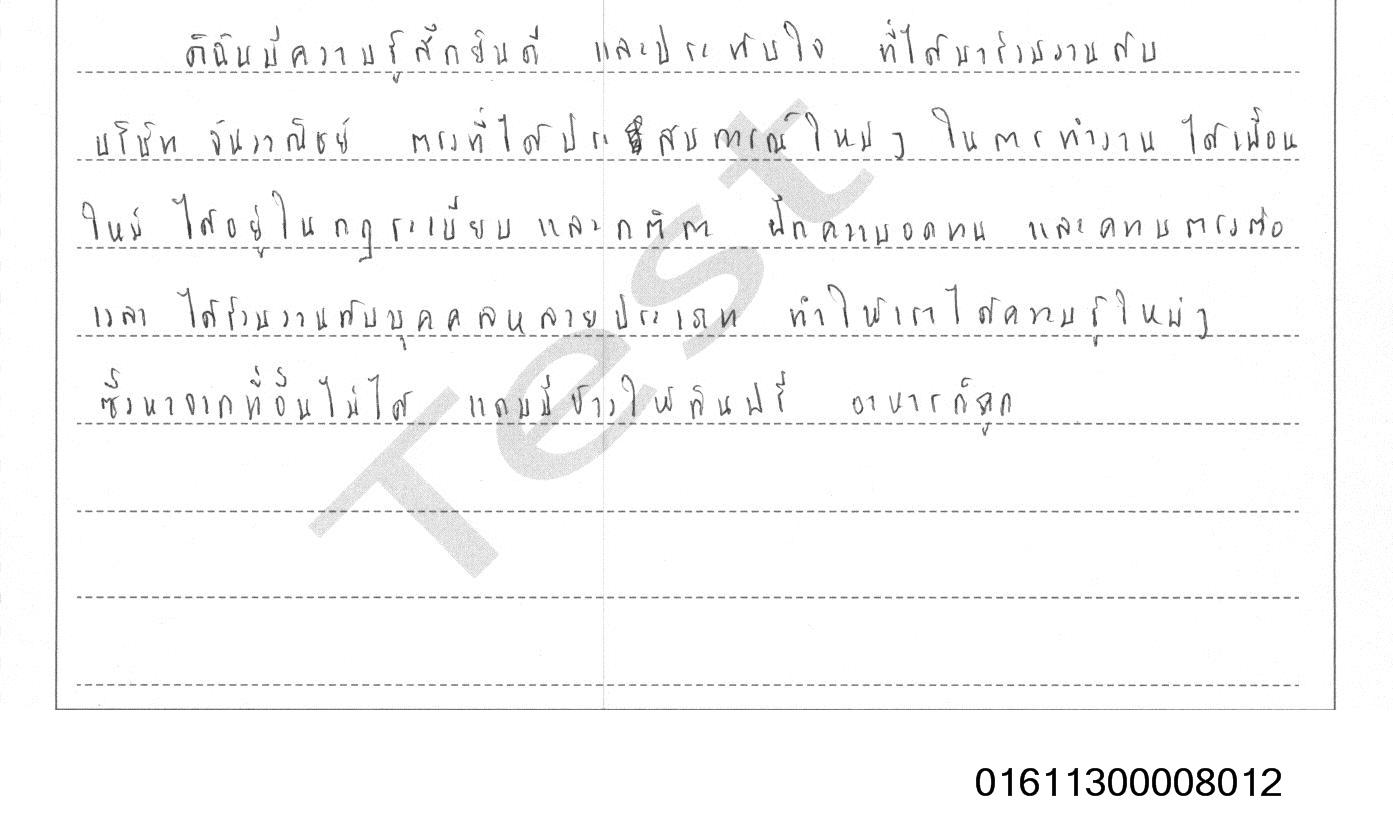 ดิฉันมีความรู้สึกยินดี และประทับใจ ที่ได้มาร่วมงานกับ
บริษัท จันวาณิชย์ ตรงที่ได้ประสบการณ์ใหม่ๆ ในการทำงาน ได้เพื่อน
ใหม่ ได้อยู่ในกฎระเบียบและกติกา ฝึกความอดทน และตรงต่อ
เวลา ได้ร่วมงานกับบุคคลหลายประเภท ทำให้เราได้ความรู้ใหม่ๆ
ซึ่งหาจากที่อื่นไม่ได้ แถมมีข้าวให้กินฟรี อาหารก็ถูก
Test
01611300008012